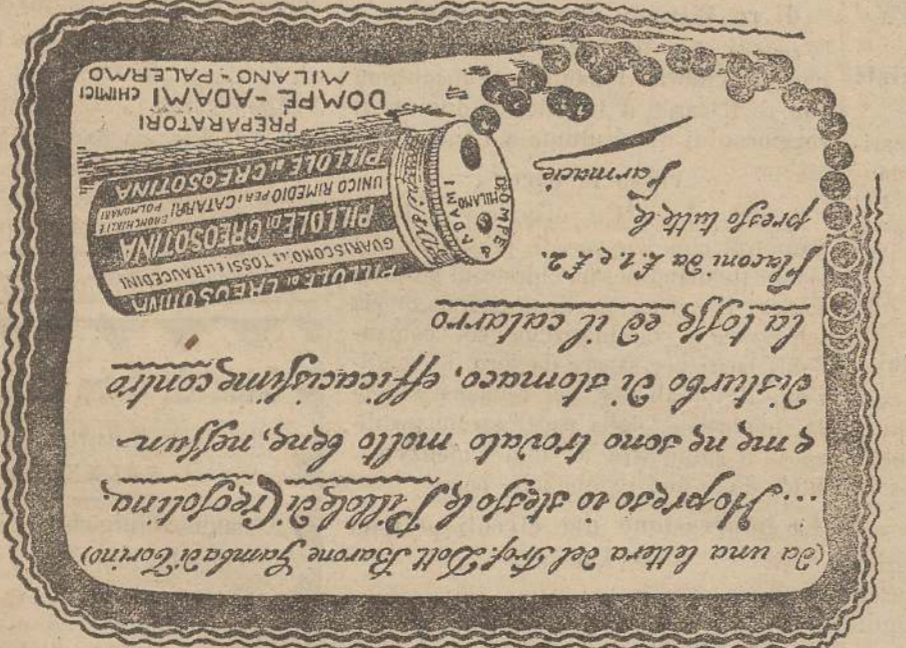 (da una lettera del Prof. Dott. Barone Gamba di Torino)
... Ho preso io stesso le Pillole di Creosotina,
e me ne sono trovato molto bene, nessun
disturbo di stomaco, efficacissime contro
la tosse ed il catarro
Flaconi da £. 1. e £ 2.
presso tutte le
Farmacie
PILLOLE DI CREOSOTINA
GUARISCONO LE TOSSI E LE RAUCEDINI
PILLOLE DI CREOSOTINA
UNICO RIMEDIO PER I CATARRI BRONCHIALI E POLMONARI
PILLOLE DI CREOSOTINA
DOMPE & ADAMI
MILANO
PREPARATORI
DOMPE - ADAMI CHIMICI
MILANO - PALERMO